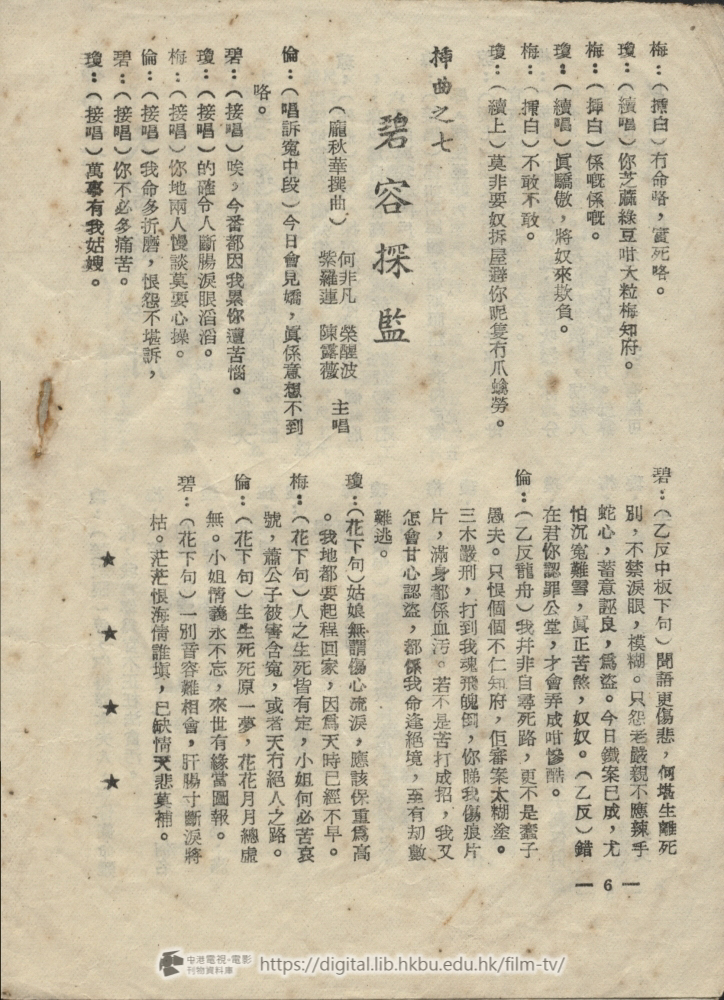 梅：（攝白）冇命咯，實死咯。
瓊：（續唱）你芝蔴綠豆咁大粒梅知府。
梅：（攝白）係嘅係嘅。
瓊：（續唱）眞驕傲，將奴來欺負。
梅：（攝白）不敢不敢。
瓊：（續上）莫非要奴拆屋避你呢隻冇爪蟧。
揷曲之七
碧容探監
（龐秋華撰曲）
何非凡　榮醒波
紫羅蓮　陳露薇
主唱
倫：（唱訴寃中段）今日會見嬌，眞係意想不到
咯。
碧：（接唱）唉，今番都因我累你遭苦惱。
瓊：（接唱）的確令人斷腸淚眼滔滔。
梅：（接唱）你地兩人慢談莫要心操。
倫：（接唱）我命多折磨，恨怨不堪訴，
碧：（接唱）你不必多痛苦。
瓊：（接唱）萬事有我姑嫂。
碧：（乙反中板下句）聞語更傷悲，何堪生離死
別，不禁淚眼，模糊。只怨老嚴親不應辣手
蛇心，蓄意誣良，爲盜。今日鐵案已成，尤
怕沉寃難雪，眞正苦煞，奴奴。（乙反）錯
在君你認罪公堂，才會弄成咁慘酷。
倫：（乙反龍舟）我幷非自尋死路，更不是蠢子
愚夫。只恨個個不仁知府，佢審案太糊塗。
三木嚴刑，打到我魂飛魄倒，你睇我傷痕片
片，滿身都係血污。若不是苦打成招，我又
怎會甘心認盜，都係我命逢絕境，至有刧數
難逃。
瓊：（花下句）姑娘無謂傷心流淚，應該保重爲高
。我地都要起程回家，因爲天時已經不早。
梅：（花下句）人之生死皆有定，小姐何必苦哀
號，蕭公子被害含寃，或者天冇絕人之路。
倫：（花下句）生生死死原一夢，花花月月總虛
無。小姐情義永不忘，來世有緣當圖報。
碧：（花下句）一別音容難相會，肝腸寸斷淚將
枯。茫茫恨海情誰塡，已缺情天悲莫補。
★　★　★　★
— 6 —
中港電視·電影
刊物資料庫
https://digital.lib.hkbu.edu.hk/film-tv/